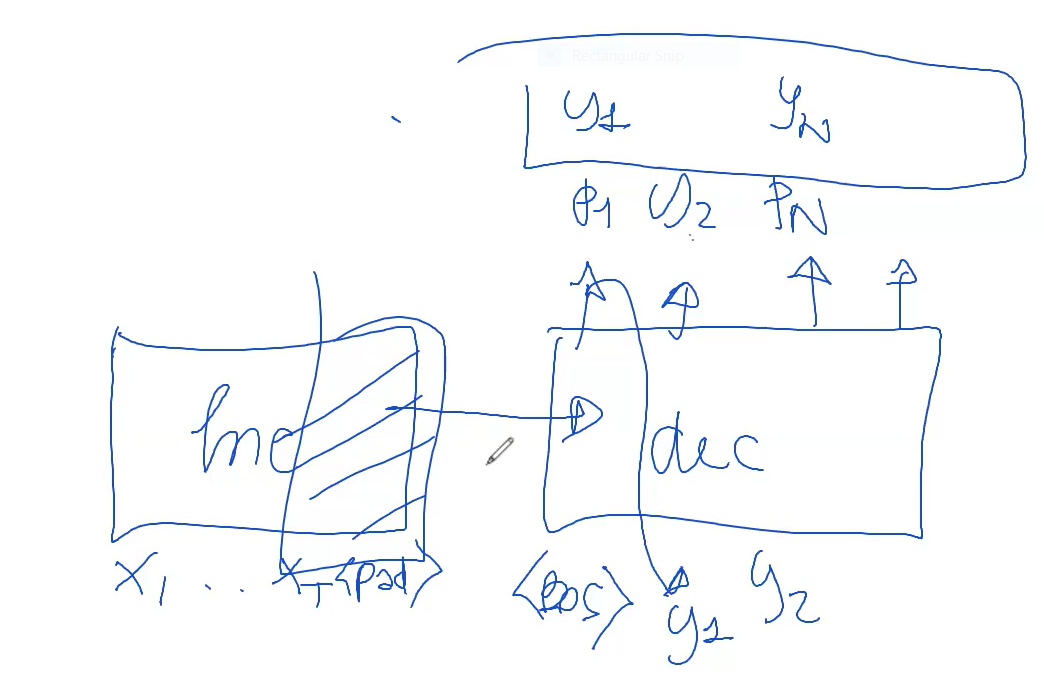 Rectangular Snip
y1 yN
p1 y2 pN
Enc dec
x1 .. xT <pad> <BOS> y1 y2